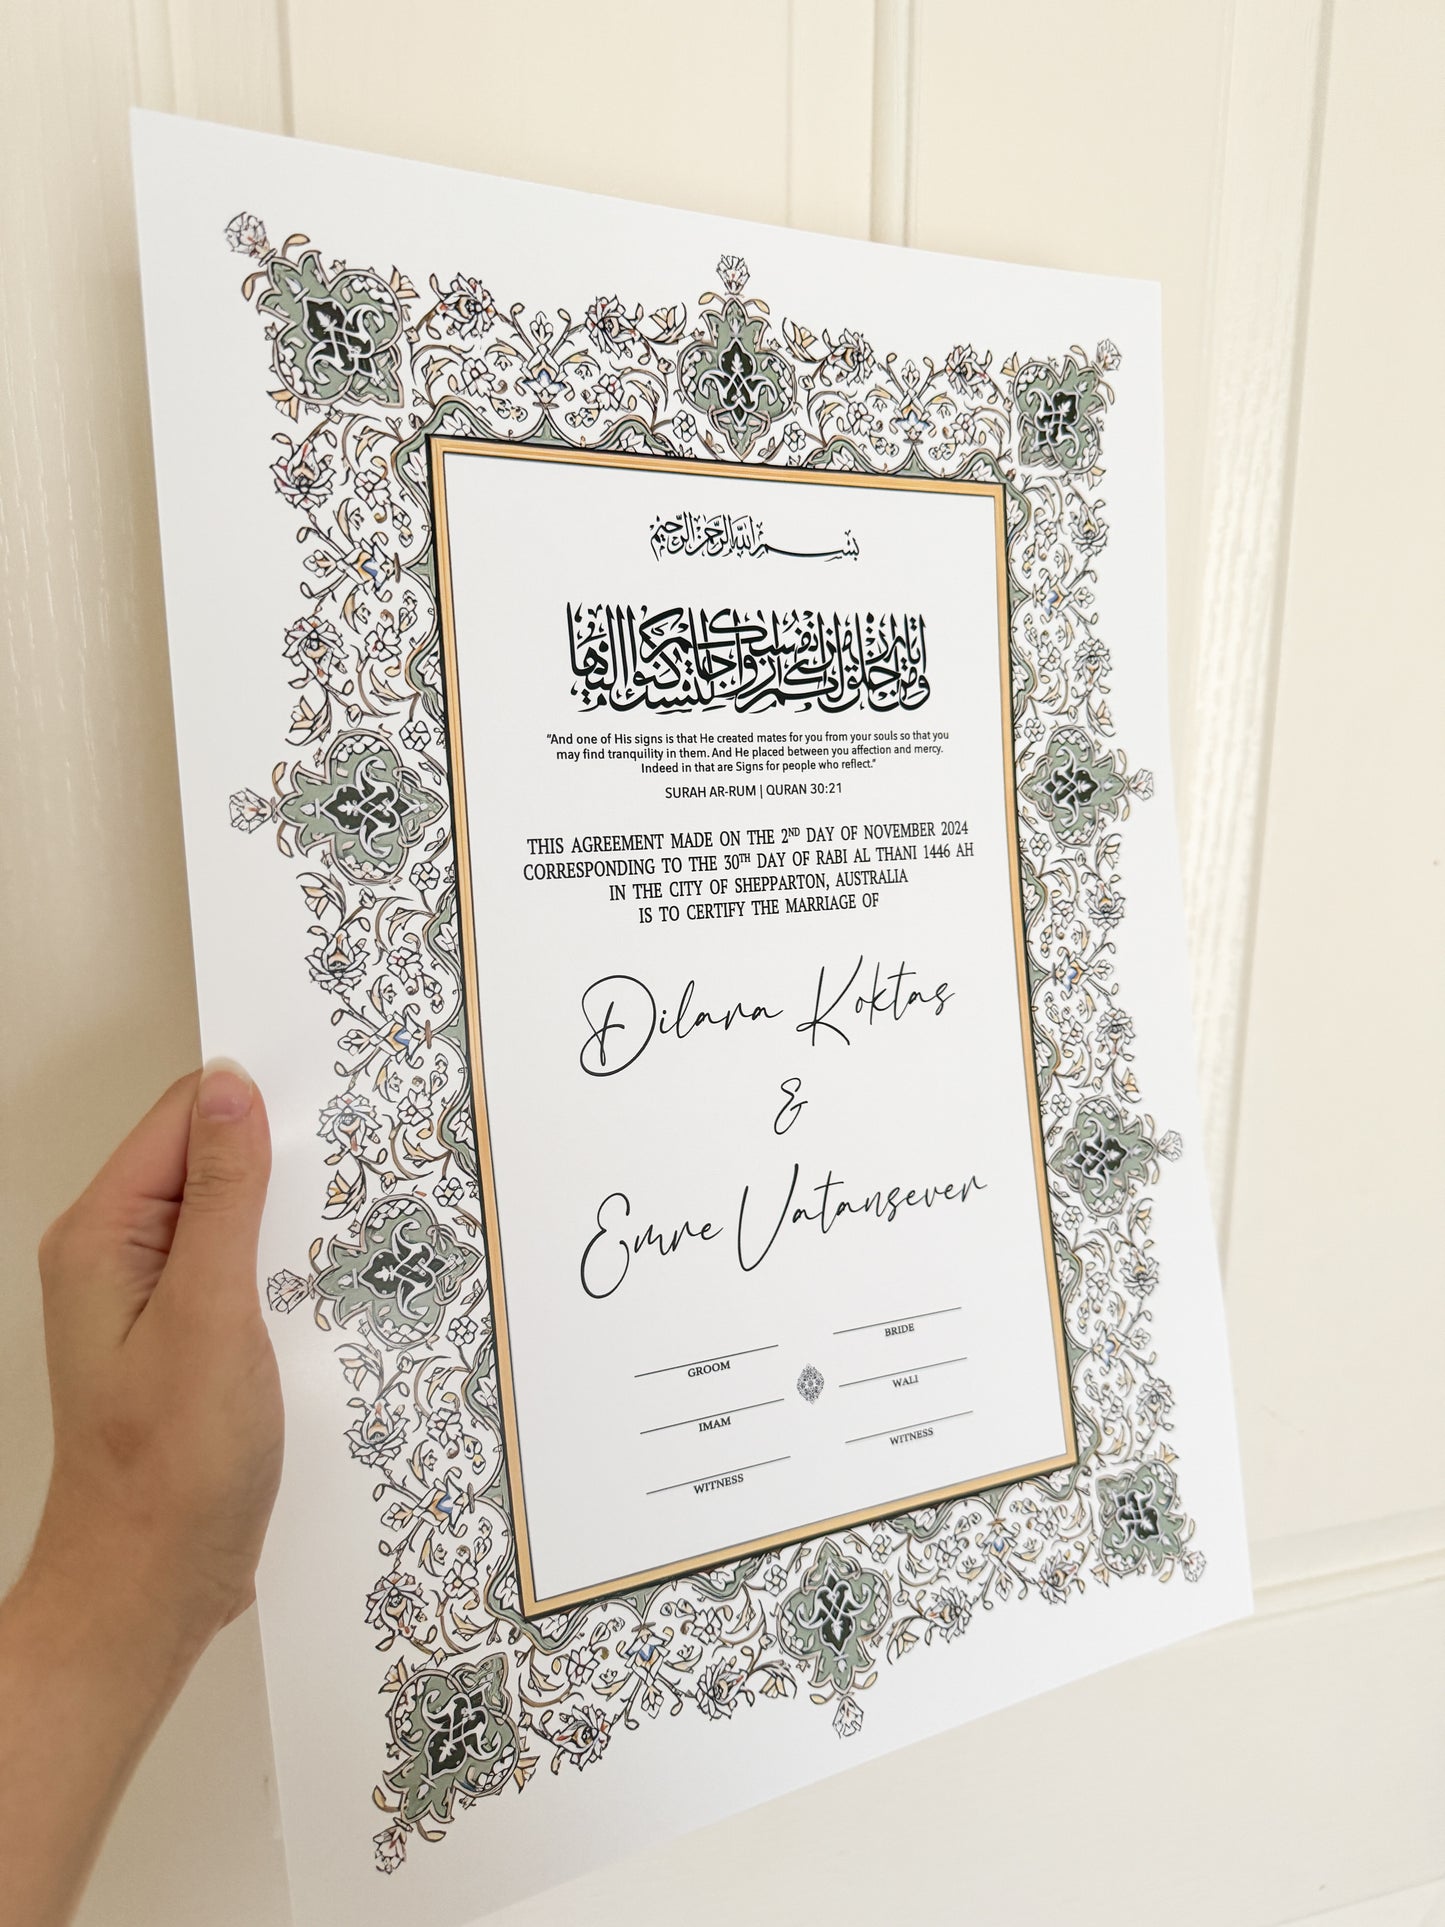 بسم الله الرحمن الرحيم
ومن آياته أن خلق لكم من أنفسكم أزواجا لتسكنوا إليها
"And one of His signs is that He created mates for you from your souls so that you
may find tranquility in them. And He placed between you affection and mercy.
Indeed in that are Signs for people who reflect."
SURAH AR-RUM | QURAN 30:21
THIS AGREEMENT MADE ON THE 2ND DAY OF NOVEMBER 2024
CORRESPONDING TO THE 30TH DAY OF RABI AL THANI 1446 AH
IN THE CITY OF SHEPPARTON, AUSTRALIA
IS TO CERTIFY THE MARRIAGE OF
Dilara Koktas
&
Emre Vatansever
GROOM
BRIDE
IMAM
WALI
WITNESS
WITNESS